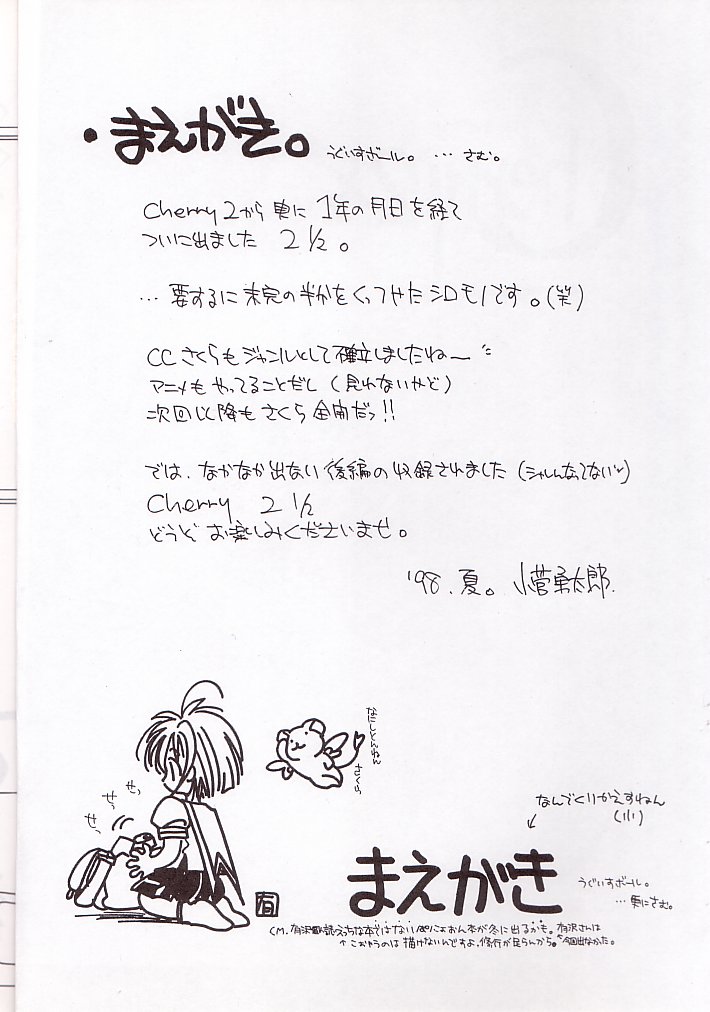 ・まえがき。 うぐいすボール。 … さむ。
Cherry 2から更に 1年の月日を経て
ついに出ました 2 1/2。
… 要するに未完の半かをくっつけたシロモノです。(笑)
CCさくらもジャンルとして確立しましたね〜
アニメもやってることだし(見れないけど)
次回以降もさくら全開だッ!!
では、なかなか出ない後編の収録されました(シャレんなってないッ)
Cherry 2 1/2
どうぞ お楽しみくださいませ。
'98.夏。 小菅勇太郎.
なにしとんねん
さくら
せっ
せっ
せっ
有
なんでくりかえすねん
(小)
まえがき うぐいすボール。
… 更にさむ。
CM. 有沢 えっちな本ではない ぷにょおん本が冬に出るかも。有沢さんは
↑ こおゆうのは描けないんですよ、修行が足らんから。今回出なかった。